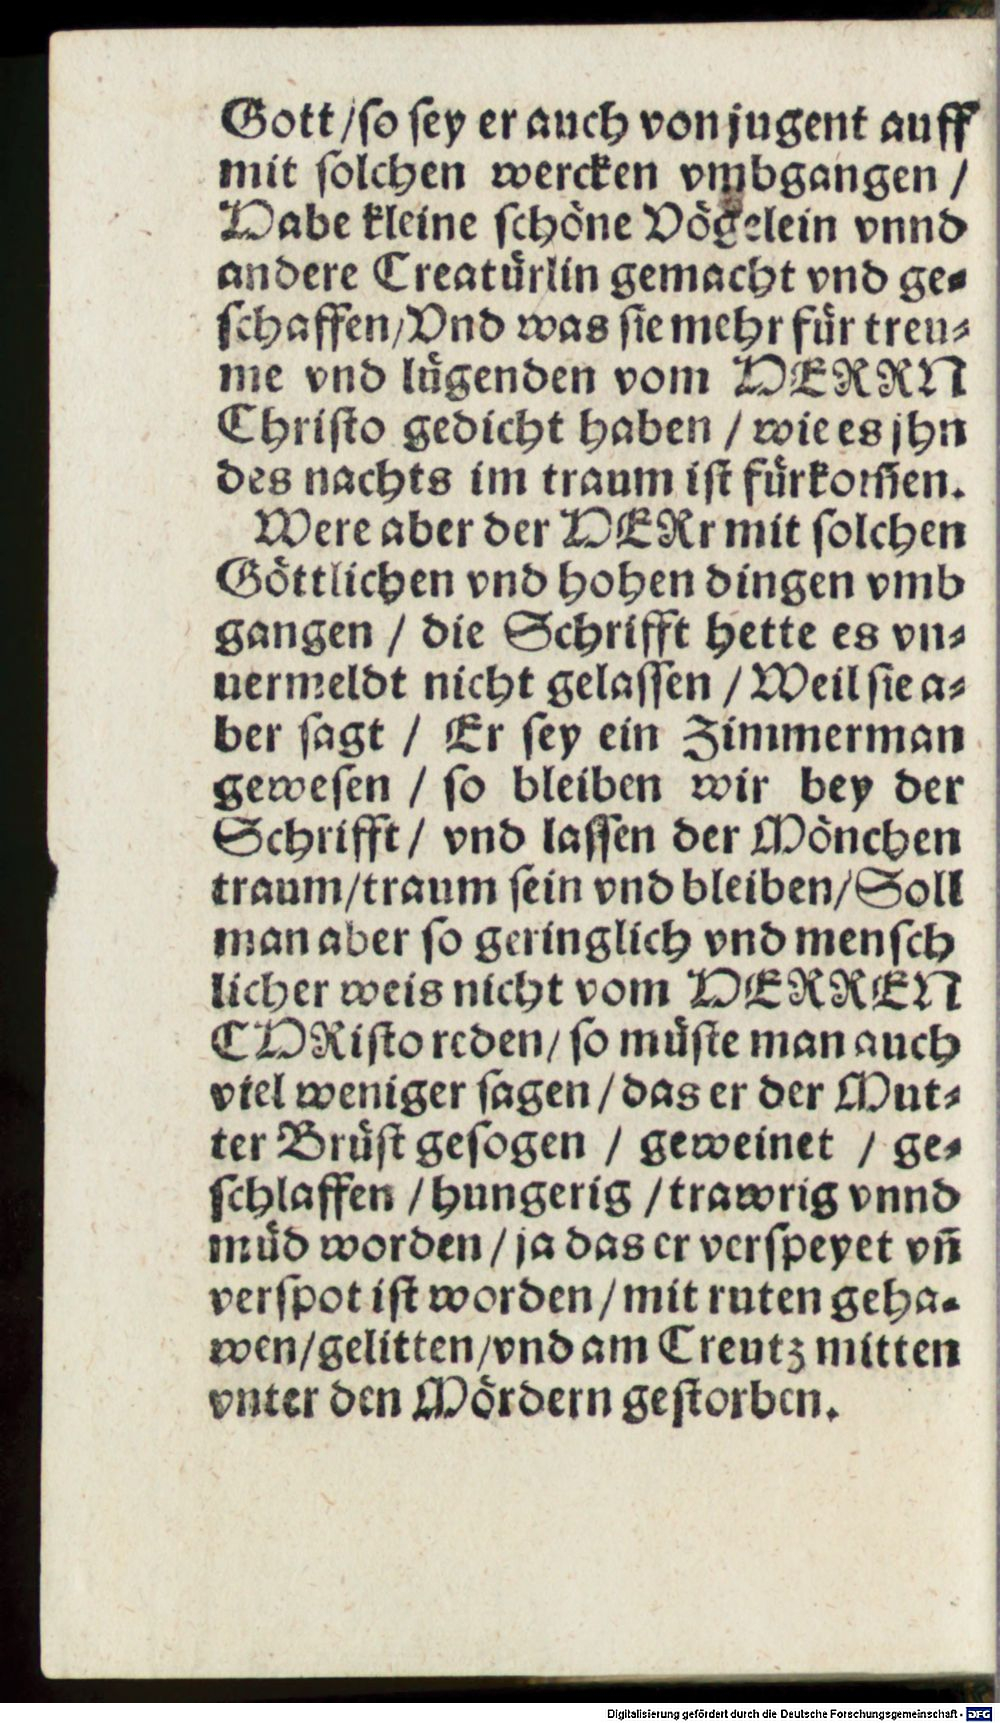 Gott / so sey er auch von jugent auff
mit solchen wercken vmbgangen /
Habe kleine schöne Vögelein vnnd
andere Creatürlin gemacht vnd ge⸗
schaffen / Vnd was sie mehr für treu⸗
me vnd lügenden vom HERRN
Christo gedicht haben / wie es jhn
des nachts im traum ist fürkom̃en.
Were aber der HERr mit solchen
Göttlichen vnd hohen dingen vmb
gangen / die Schrifft hette es vn⸗
uermeldt nicht gelassen / Weil sie a⸗
ber sagt / Er sey ein Zimmerman
gewesen / so bleiben wir bey der
Schrifft / vnd lassen der Mönchen
traum / traum sein vnd bleiben / Soll
man aber so geringlich vnd mensch
licher weis nicht vom HERREN
CHRisto reden / so müste man auch
viel weniger sagen / das er der Mut⸗
ter Brüst gesogen / geweinet / ge⸗
schlaffen / hungerig / trawrig vnnd
müd worden / ja das er verspeyet vñ
verspot ist worden / mit ruten geha⸗
wen / gelitten / vnd am Creutz mitten
vnter den Mördern gestorben.
Digitalisierung gefördert durch die Deutsche Forschungsgemeinschaft - DFG